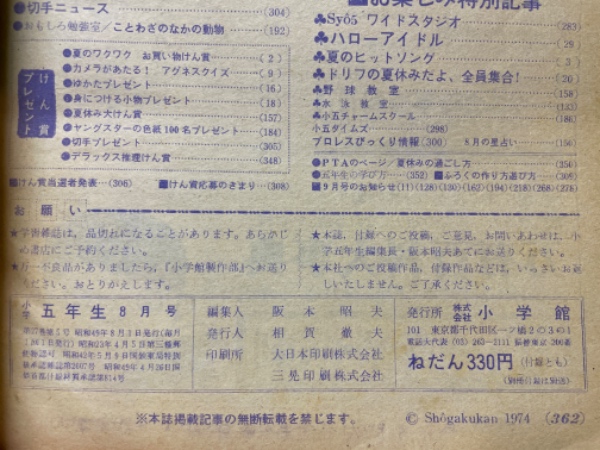 ●切手ニュース (304)
●おもしろ勉強室/ことわざのなかの動物 (192)
けん賞プレゼント
●夏のワクワク お買い物けん賞 (2)
●カメラがあたる! アグネスクイズ (9)
●ゆかたプレゼント (16)
●身につける小物プレゼント (18)
●夏休み大けん賞 (157)
●ヤングスターの色紙100名プレゼント (184)
●切手プレゼント (305)
●デラックス推理けん賞 (348)
■けん賞当選者発表…(306) ■けん賞応募のきまり…(308)
特別記事
♣Syô5ワイドスタジオ (283)
♣ハローアイドル (29)
♣夏のヒットソング (3)
♣ドリフの夏休みだよ、全員集合! (20)
♣野球教室 (158)
♣水泳教室 (133)
♣小五チャームスクール (186)
小五タイムズ (298)
プロレスびっくり情報 (300) 8月の星占い (156)
●PTAのページ/夏休みの過ごし方 (350)
●五年生の学び方 (352) ■ふろくの作り方遊び方 (309)
■9月号のお知らせ(11)(128)(130)(163)(194)(218)(268)(278)
お願い
★学習雑誌は、品切れになることがあります。あらかじ
め書店にご予約ください。
★万一不良品がありましたら、『小学館製作部』へお送り
ください。おとりかえします。
★本誌、付録へのご投稿、ご意見、お問いあわせは、小
学五年生編集長・阪本昭夫あてにお送りください。
★本社へのご投稿作品、付録作品などは、いっさいお返
しいたしません。ご了承ください。
小学五年生8月号
第27巻第5号 昭和49年8月1日発行(毎月
1回1日発行)昭和23年4月5日第三種郵
便物認可 昭和42年5月8日国鉄東局特別
扱承認雑誌第2007号 昭和49年4月26日
編集人 阪本昭夫
発行人 相賀徹夫
印刷所 大日本印刷株式会社
三晃印刷株式会社
発行所 株式会社 小学館
101 東京都千代田区一ツ橋2の3の1
ねだん330円(付録とも)
※本誌掲載記事の無断転載を禁じます。
© Shôgakukan 1974 (362)